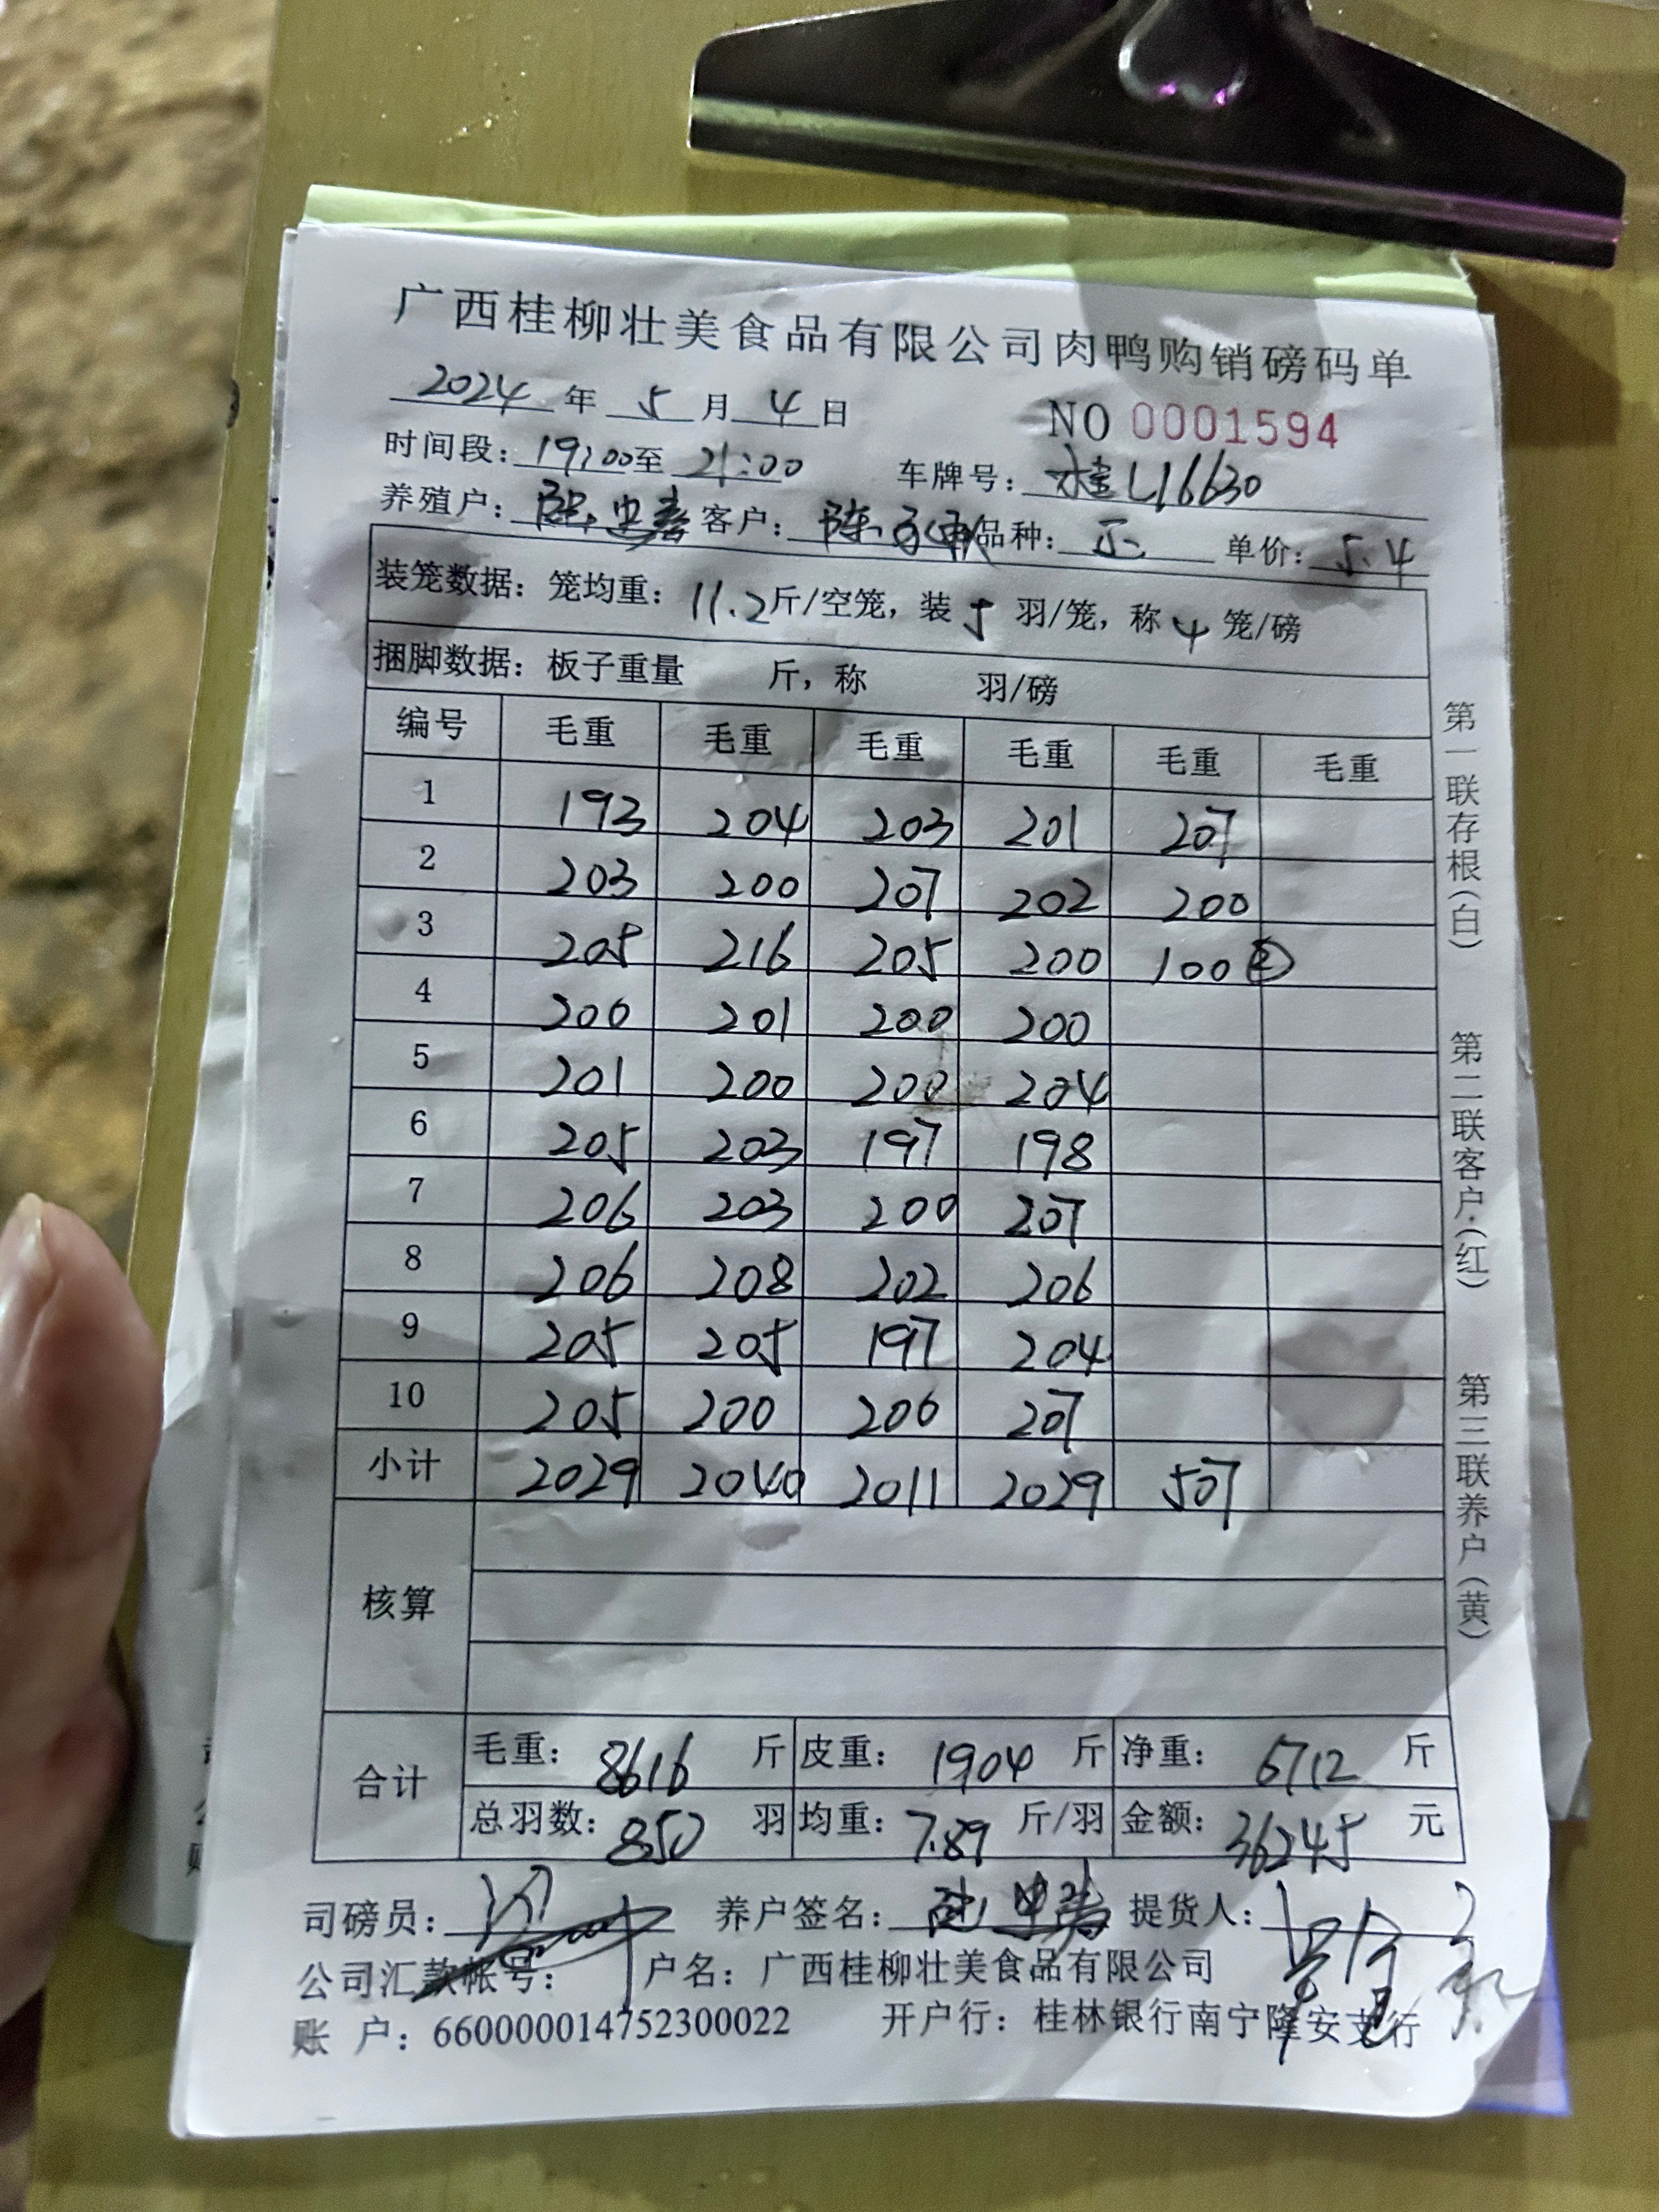 广西桂柳壮美食品有限公司肉鸭购销磅码单
2024 年 5 月 4 日 NO 0001594
时间段: 19:00至 21:00 车牌号: 桂L16630
养殖户: 客户: 陈 品种: 正 单价: 5.4
装笼数据: 笼均重: 11.2斤/空笼, 装 5 羽/笼, 称 4 笼/磅
捆脚数据: 板子重量 斤, 称 羽/磅
编号 毛重 毛重 毛重 毛重 毛重 毛重
1 193 204 203 201 207
2 203 200 207 202 200
3 205 216 205 200 100 ②
4 200 201 200 200
5 201 200 200 204
6 205 203 197 198
7 206 203 200 207
8 206 208 202 206
9 205 205 197 204
10 205 200 200 207
小计 2029 2040 2011 2029 507
核算
合计 毛重: 8616 斤 皮重: 1904 斤 净重: 6712 斤
总羽数: 850 羽 均重: 7.89 斤/羽 金额: 36245 元
司磅员: 养户签名: 提货人:
公司汇款帐号: 户名: 广西桂柳壮美食品有限公司
账 户: 660000014752300022 开户行: 桂林银行南宁隆安支行
第一联存根(白) 第二联客户(红) 第三联养户(黄)